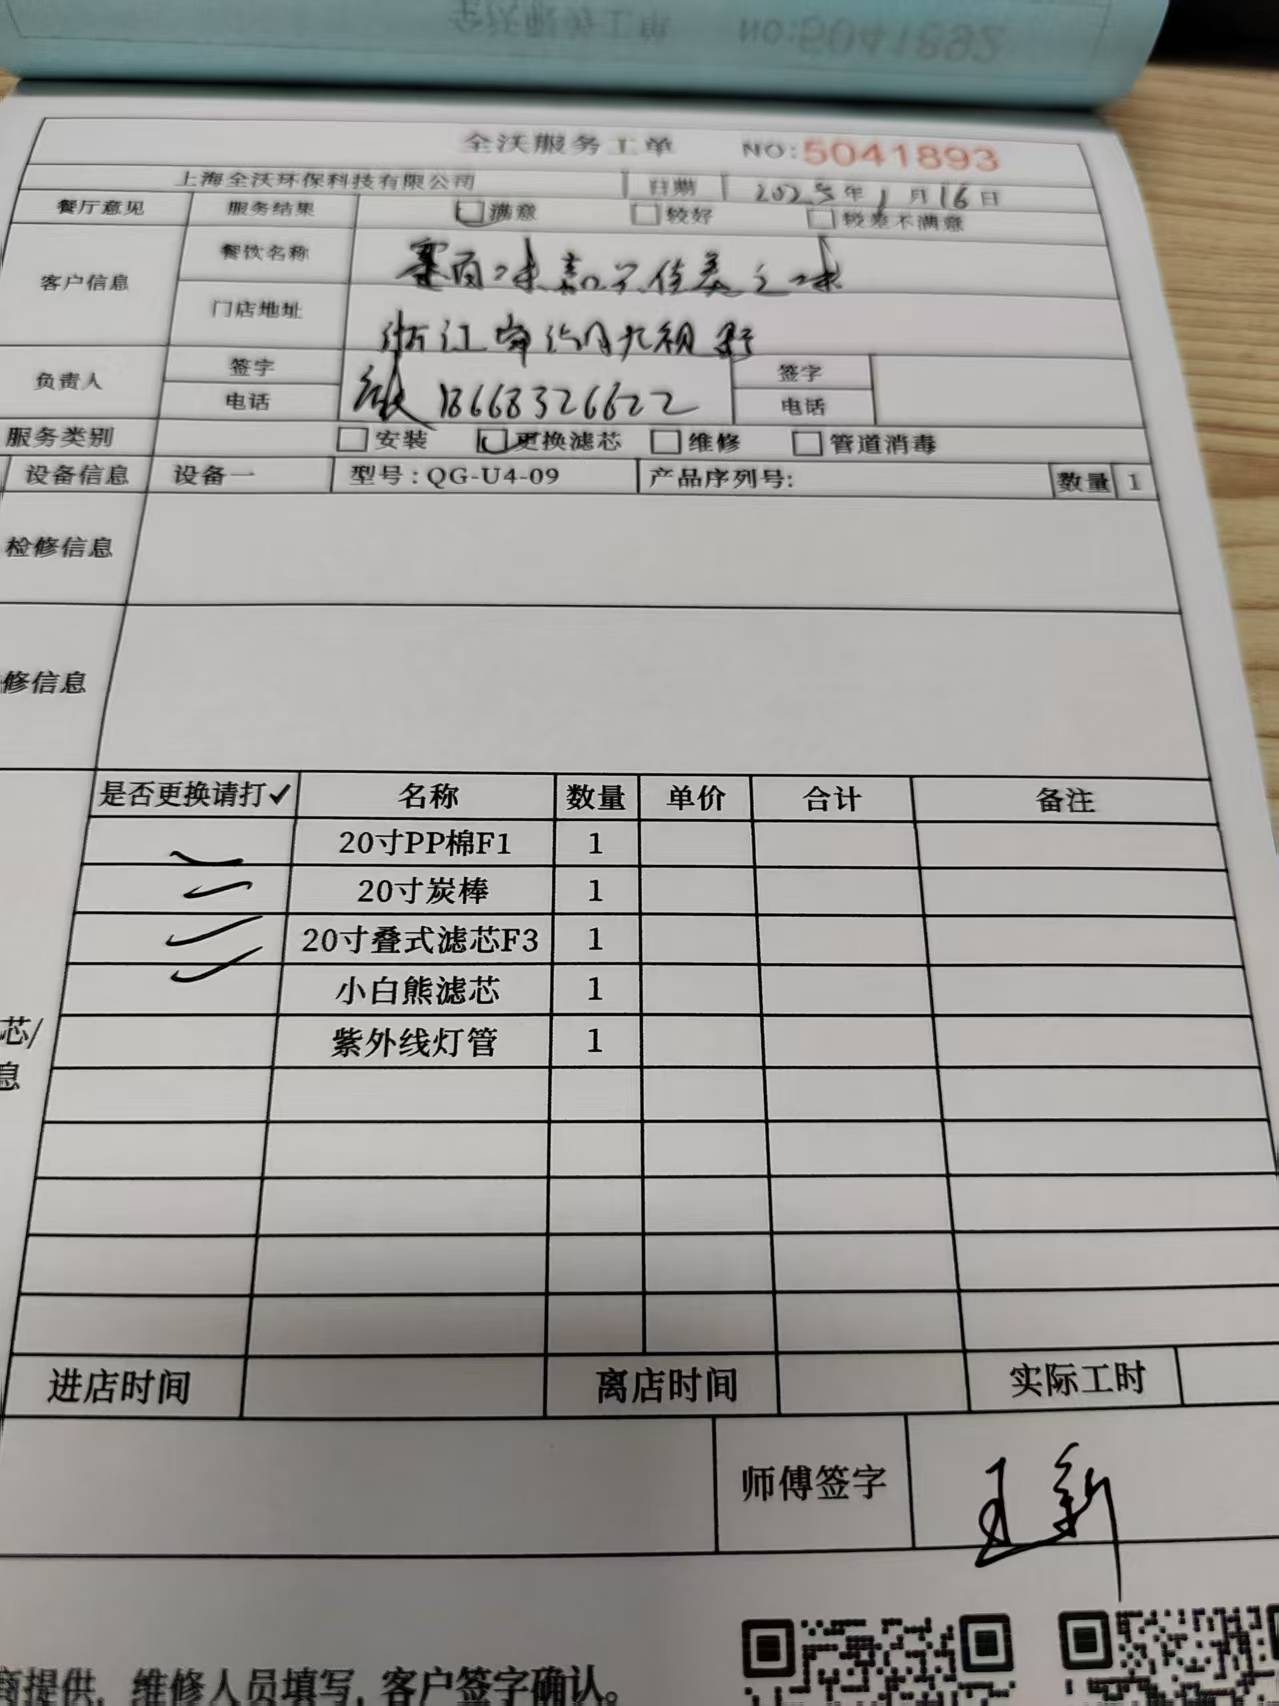 全沃服务工单 NO:5041892
全沃服务工单 NO:5041893
上海全沃环保科技有限公司 日期 2025年1月16日
餐厅意见 服务结果 满意 较好 较差不满意
客户信息 餐饮名称 赛百味嘉兴佳美之味
门店地址 浙江
负责人 签字 签字
电话 18668326622 电话
服务类别 安装 更换滤芯 维修 管道消毒
设备信息 设备一 型号:QG-U4-09 产品序列号: 数量 1
检修信息
修信息
是否更换请打✓ 名称 数量 单价 合计 备注
✓ 20寸PP棉F1 1
✓ 20寸炭棒 1
✓ 20寸叠式滤芯F3 1
✓ 小白熊滤芯 1
芯/
紫外线灯管 1
息
进店时间 离店时间 实际工时
师傅签字 王新
商提供, 维修人员填写, 客户签字确认。